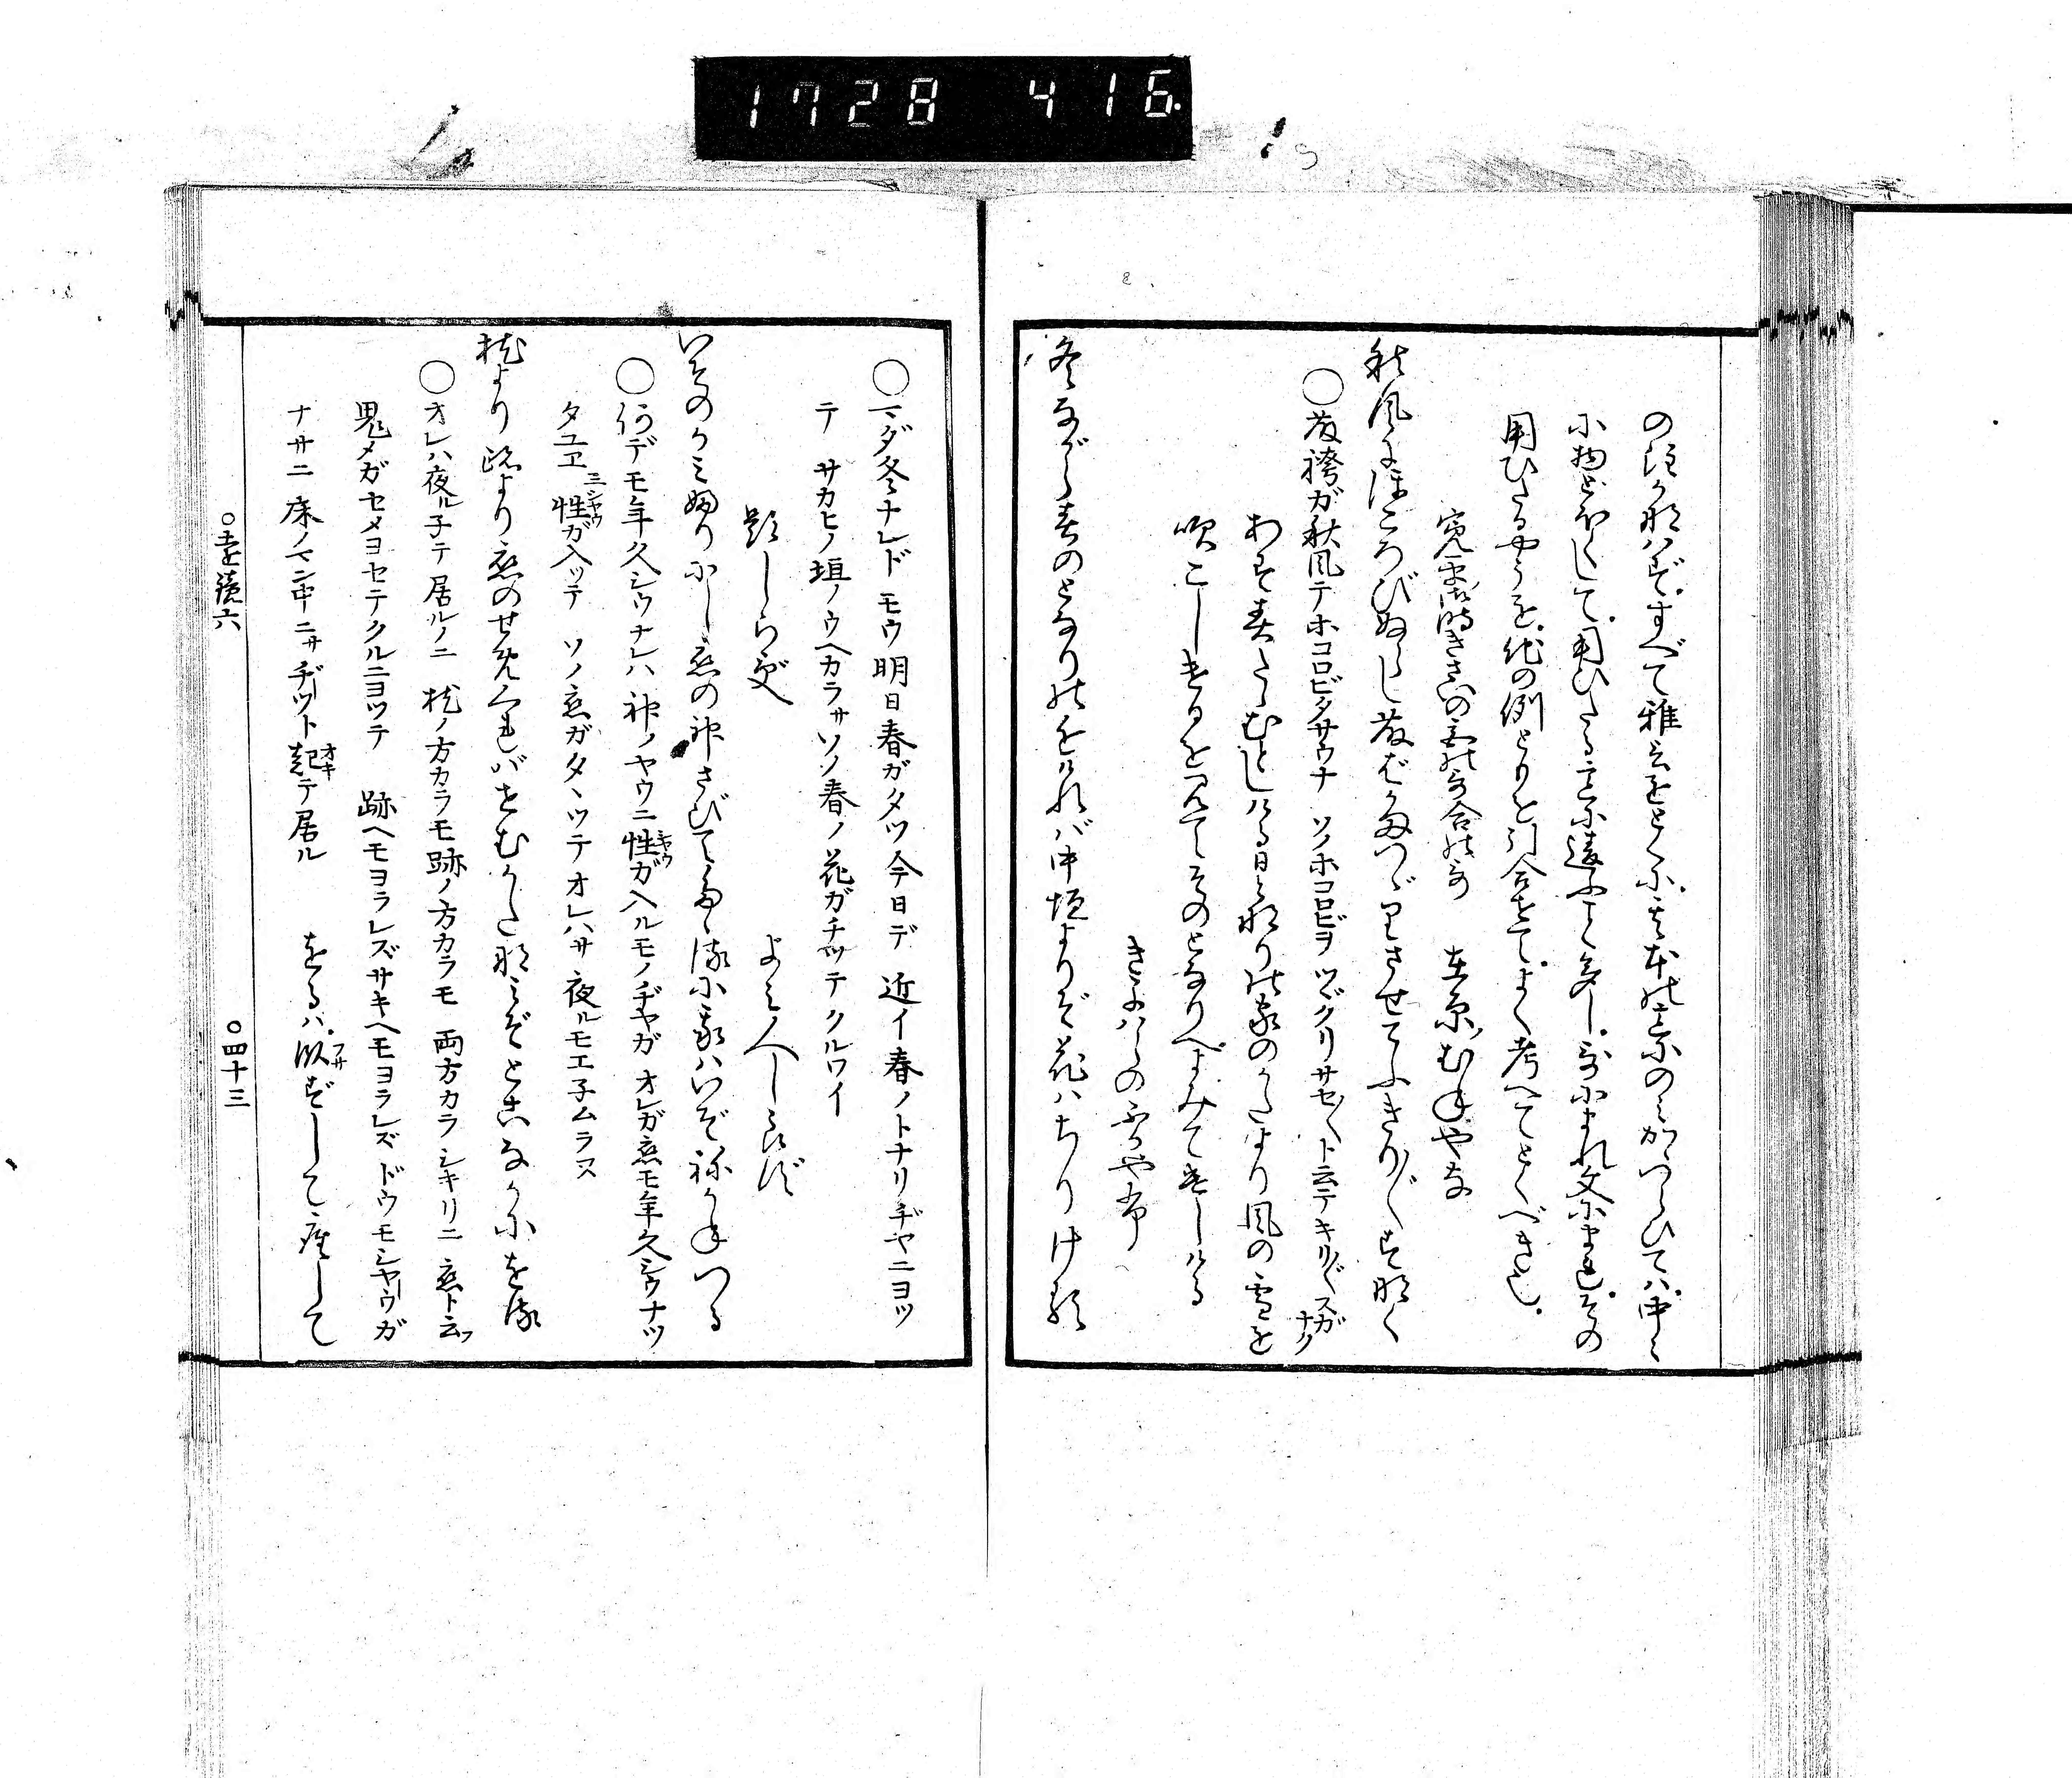 1728 416.
の注にかなはず。すべて雅言をとくに。其本の意のみかゝつらひては。中々
に物どほくして。用ひたる意に違ふこと多し。歌にまれ文にまれ。その
用ひたるやうを。他の例どもを引合せて。よく考へてとくべき也。
寛平御時きさいの宮の歌合の歌 在原むねやな
秋風にほころびぬらし藤ばかまつゞりさせてふきり〴〵すなく
○藤袴ガ秋風テホコロビタサウナ ソノホコロビヲ ツヾクリサセ〳〵ト云テキリ〴〵スガナク
あす春たゝむとしける日となりの家のかたより風の雪を
吹こしけるを見てそのとなりへよみてつかはしける
きよはらのふかやぶ
冬ながら春のとなりのちかければ中垣よりぞ花はちりける
○マダ冬ナレド モウ明日春ガタツ今日デ 近イ春ノトナリヂヤニヨツ
テ サカヒノ垣ノウヘカラサソノ春ノ花ガチツテクルワイ
題しらず よみ人しらず
いそのかみふりにし恋の神さびてたゝるに我はいぞねかねつる
○何デモ年久シウナレハ 神ノヤウニ性ガ入ルモノヂヤガ オレガ恋モ年久シウナツ
シヤウ
タユヱ 性ガ入ツテ ソノ恋ガタヽツテオレハサ 夜ルモエ子ムラヌ
シヤウ
枕より跡より恋のせめくればせむかたなみぞとこなかにをる
○オレハ夜ル子テ居ルノニ 枕ノ方カラモ跡ノ方カラモ 両方カラシキリニ 恋ト云フ
鬼メガセメヨセテクルニヨツテ 跡ヘモヨラレズサキヘモヨラレズ ドウモシヤウガ
ナサニ 床ノマン中ニサヂツト起テ居ル をるは。臥ずして座して
オキ フサ
○遠鏡六 ○四十三